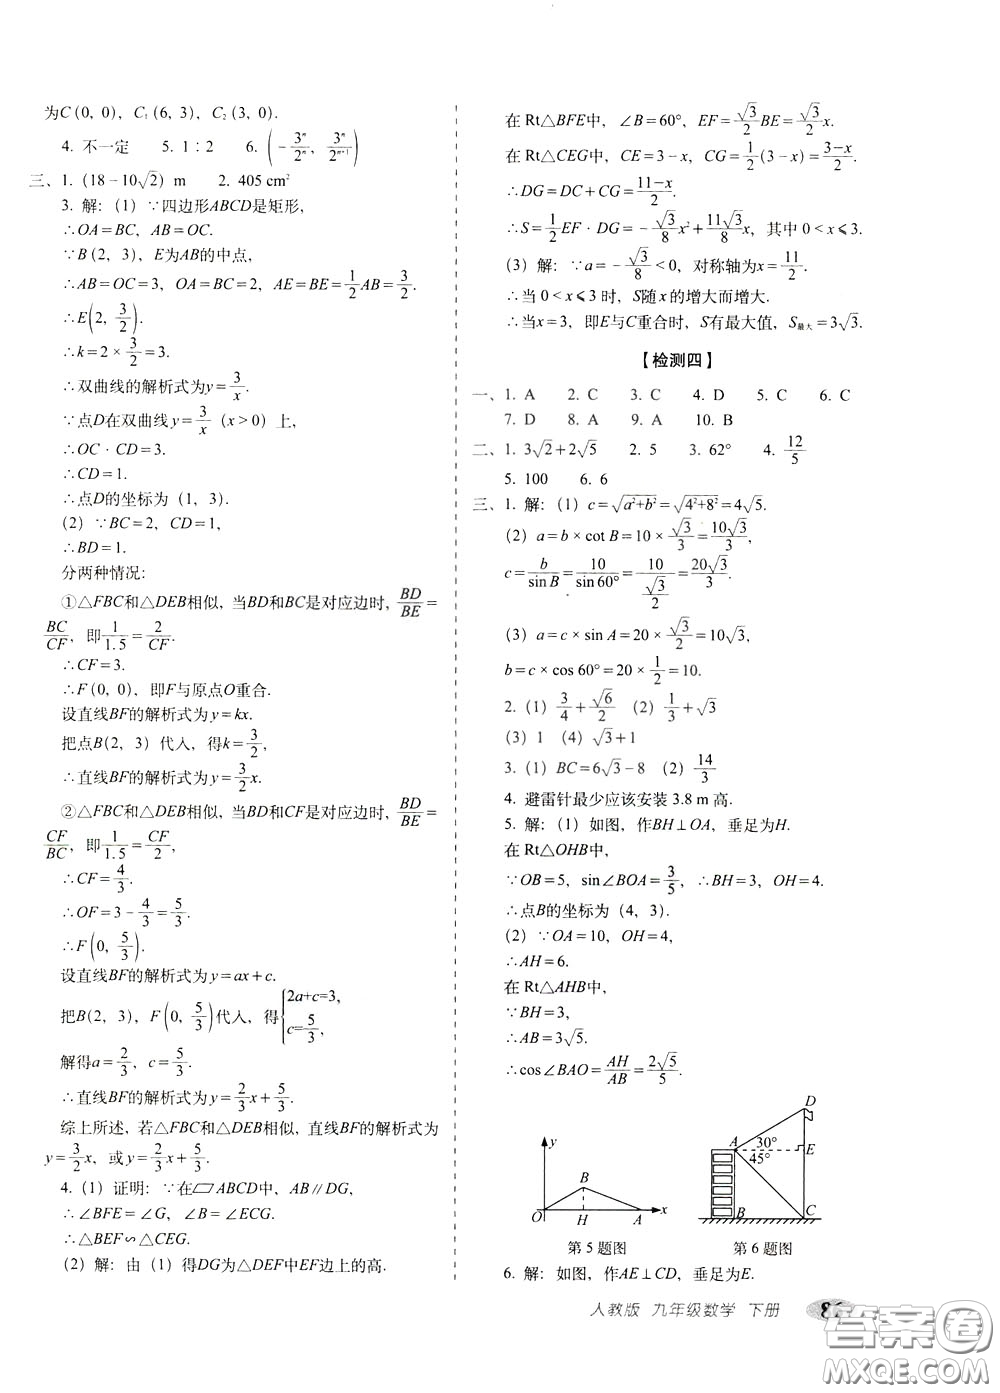 为C (0, 0), C₁ (6, 3), C₂ (3, 0).
4. 不一定  5. 1∶2  6. (-3ⁿ/2ⁿ, 3ⁿ/2ⁿ⁺¹)
三、1. (18-10√2) m  2. 405 cm²
3. 解：(1) ∵四边形ABCD是矩形,
∴OA=BC, AB=OC.
∵B (2, 3), E为AB的中点,
∴AB=OC=3, OA=BC=2, AE=BE=1/2AB=3/2.
∴E(2, 3/2).
∴k=2×3/2=3.
∴双曲线的解析式为y=3/x.
∵点D在双曲线y=3/x (x>0) 上,
∴OC·CD=3.
∴CD=1.
∴点D的坐标为 (1, 3).
(2) ∵BC=2, CD=1,
∴BD=1.
分两种情况:
①△FBC和△DEB相似, 当BD和BC是对应边时, BD/BE=
BC/CF, 即1/1.5=2/CF.
∴CF=3.
∴F (0, 0), 即F与原点O重合.
设直线BF的解析式为y=kx.
把点B(2, 3) 代入, 得k=3/2,
∴直线BF的解析式为y=3/2x.
②△FBC和△DEB相似, 当BD和CF是对应边时, BD/BE=
CF/BC, 即1/1.5=CF/2,
∴CF=4/3.
∴OF=3-4/3=5/3.
∴F(0, 5/3).
设直线BF的解析式为y=ax+c.
把B(2, 3), F(0, 5/3)代入, 得{2a+c=3, c=5/3,
解得a=2/3, c=5/3.
∴直线BF的解析式为y=2/3x+5/3.
综上所述, 若△FBC和△DEB相似, 直线BF的解析式为
y=3/2x, 或y=2/3x+5/3.
4. (1) 证明: ∵在▱ABCD中, AB∥DG,
∴∠BFE=∠G, ∠B=∠ECG.
∴△BEF∽△CEG.
(2) 解: 由 (1) 得DG为△DEF中EF边上的高.
在 Rt△BFE中, ∠B=60°, EF=√3/2BE=√3/2x.
在 Rt△CEG中, CE=3-x, CG=1/2(3-x)=(3-x)/2.
∴DG=DC+CG=(11-x)/2.
∴S=1/2EF·DG=-√3/8x²+11√3/8x, 其中 0<x⩽3.
(3) 解: ∵a=-√3/8<0, 对称轴为x=11/2.
∴当 0<x⩽3 时, S随x的增大而增大.
∴当x=3, 即E与C重合时, S有最大值, S最大=3√3.
【检测四】
一、1. A  2. C  3. C  4. D  5. C  6. C
7. D  8. A  9. A  10. B
二、1. 3√2+2√5  2. 5  3. 62°  4. 12/5
5. 100  6. 6
三、1. 解: (1) c=√(a²+b²)=√(4²+8²)=4√5.
(2) a=b×cot B=10×√3/3=10√3/3,
c=b/sin B=10/sin60°=10/(√3/2)=20√3/3.
(3) a=c×sin A=20×√3/2=10√3,
b=c×cos 60°=20×1/2=10.
2. (1) 3/4+√6/2  (2) 1/3+√3
(3) 1  (4) √3+1
3. (1) BC=6√3-8  (2) 14/3
4. 避雷针最少应该安装 3.8 m 高.
5. 解: (1) 如图, 作BH⊥OA, 垂足为H.
在 Rt△OHB中,
∵OB=5, sin∠BOA=3/5, ∴BH=3, OH=4.
∴点B的坐标为 (4, 3).
(2) ∵OA=10, OH=4,
∴AH=6.
在 Rt△AHB中,
∵BH=3,
∴AB=3√5.
∴cos∠BAO=AH/AB=2√5/5.
y
B
O H A x
第 5 题图
D
A 30° E
45°
B C
第 6 题图
6. 解: 如图, 作AE⊥CD, 垂足为E.
人教版 九年级数学 下册
答案卷
MXQE.COM